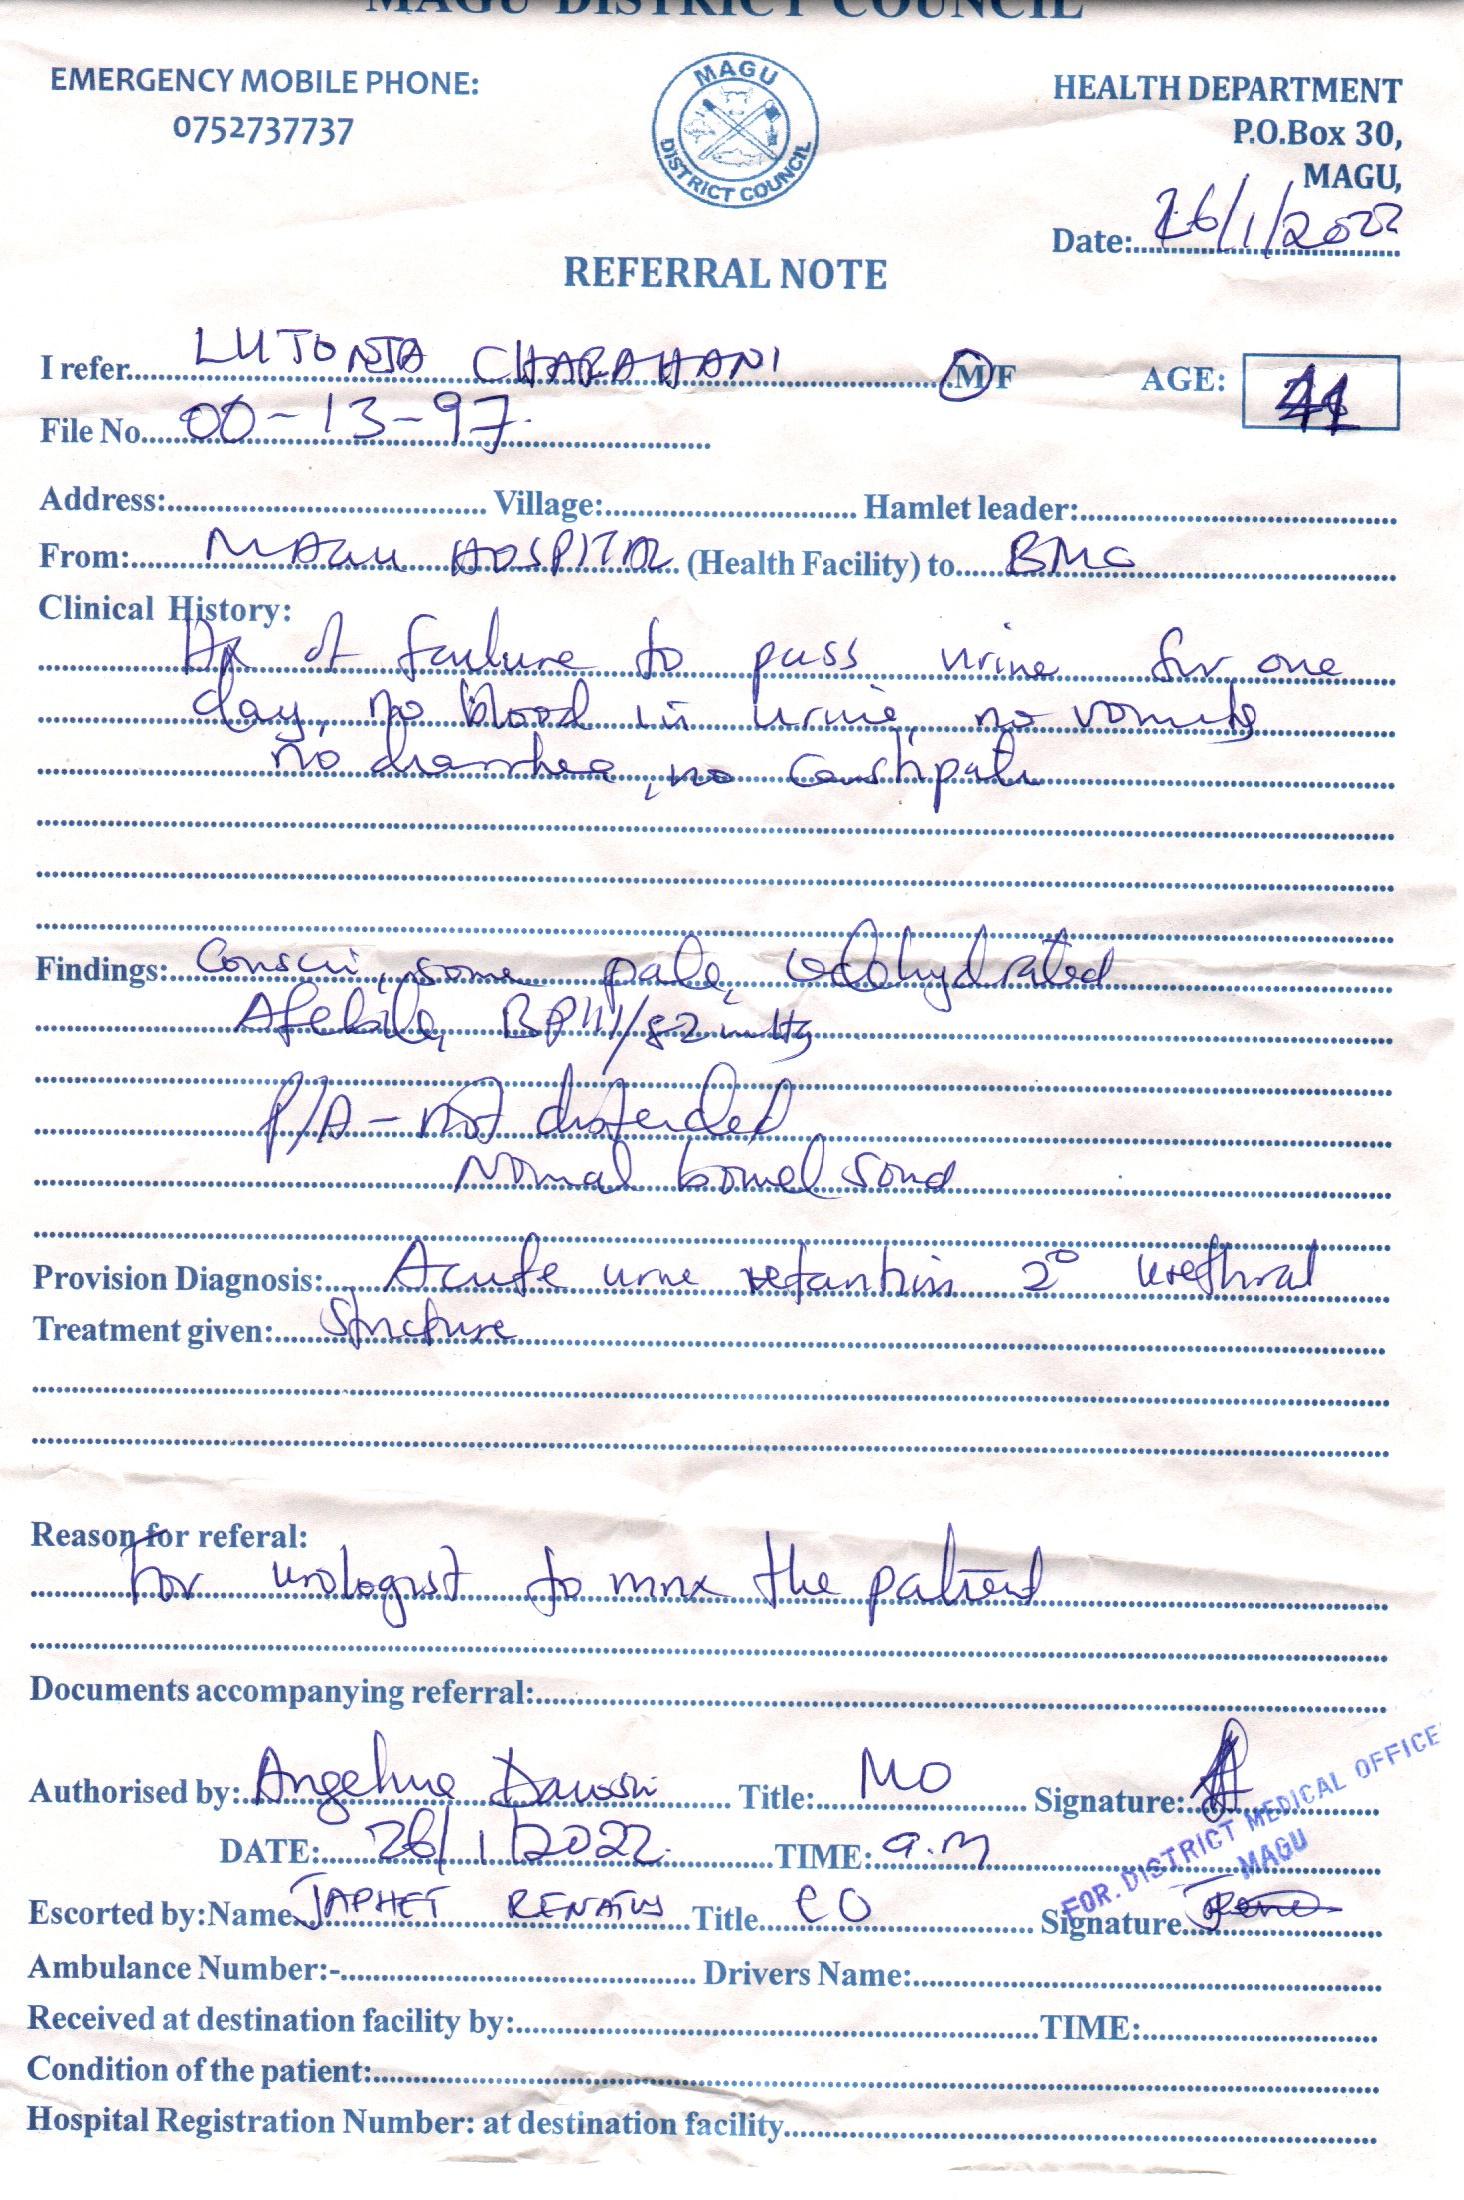 MAGU DISTRICT COUNCIL
EMERGENCY MOBILE PHONE:
0752737737
MAGU
DISTRICT COUNCIL
HEALTH DEPARTMENT
P.O.Box 30,
MAGU,
Date: 26/1/2022
REFERRAL NOTE
I refer LUTONJA CHARAHANI M/F AGE:
File No. 00-13-97.
Address: Village: Hamlet leader:
From: MAGU HOSPITAL (Health Facility) to BMC
Clinical History:
Hx of failure to pass urine for one
day, no blood in urine, no vomiting
no diarrhea, no constipati
Findings: Consci, some pale, dehydrated
Afebrile, BP 111/82 mmHg
P/A - not distended
Normal bowel sound
Provision Diagnosis: Acute urine retantion 2° urethral
Treatment given: Stricture
Reason for referal:
For urologist to mnx the patient
Documents accompanying referral:
Authorised by: Angelina Title: MO Signature:
DATE: 26/1/2022. TIME: a.m
FOR. DISTRICT MEDICAL OFFICE
MAGU
Escorted by:Name JAPHET RENATUS Title CO Signature
Ambulance Number:- Drivers Name:
Received at destination facility by: TIME:
Condition of the patient:
Hospital Registration Number: at destination facility